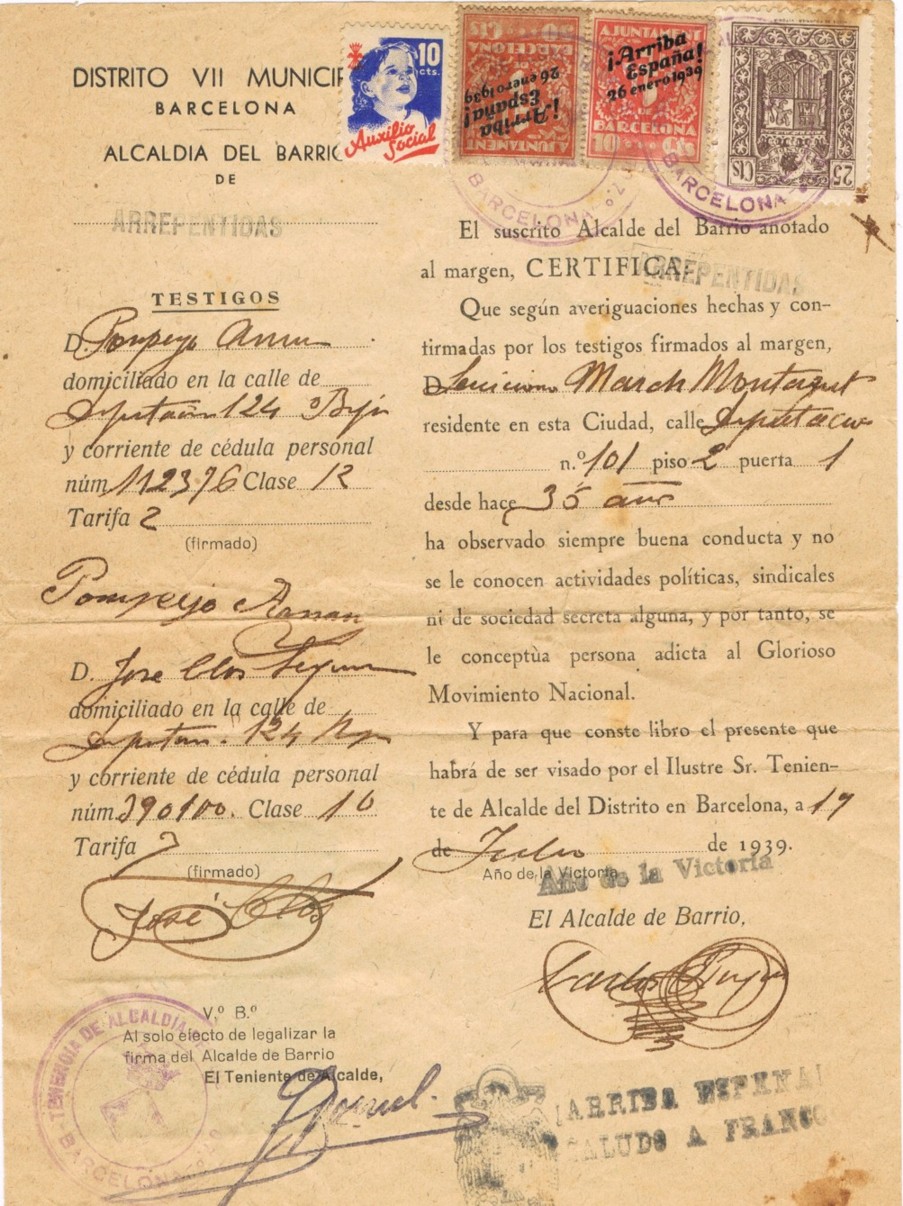 DISTRITO VII MUNICIP
BARCELONA
ALCALDIA DEL BARRIO
DE
ARREPENTIDAS
10
cts.
Auxilio
Social
AJUNTAMENT
BARCELONA
50 CTS
¡Arriba
España!
26 enero 1939
AJUNTAMENT
DE
BARCELONA
10 CTS
¡Arriba
España!
26 enero 1939
25 CTS
BARCELONA
BARCELONA
TESTIGOS
D. Pompeyo
domiciliado en la calle de
124
y corriente de cédula personal
núm. 112376 Clase 12
Tarifa 2
(firmado)
Pompeyo
D. Jose Clos
domiciliado en la calle de
124
y corriente de cédula personal
núm. 390100. Clase 10
Tarifa 7
(firmado)
José Clos
V.º B.º
Al solo efecto de legalizar la
firma del Alcalde de Barrio
El Teniente de Alcalde,
TENENCIA DE ALCALDIA
BARCELONA
El suscrito Alcalde del Barrio anotado
al margen, CERTIFICA:
ARREPENTIDAS
Que según averiguaciones hechas y con-
firmadas por los testigos firmados al margen,
D. March Montagut
residente en esta Ciudad, calle Diputacion
n.º 101 piso 2 puerta 1
desde hace 35 años
ha observado siempre buena conducta y no
se le conocen actividades políticas, sindicales
ni de sociedad secreta alguna, y por tanto, se
le conceptùa persona adicta al Glorioso
Movimiento Nacional.
Y para que conste libro el presente que
habrá de ser visado por el Ilustre Sr. Tenien-
te de Alcalde del Distrito en Barcelona, a 19
de Julio de 1939.
Año de la Victoria
Año de la Victoria
El Alcalde de Barrio,
Carlos
¡ARRIBA ESPAÑA!
SALUDO A FRANCO